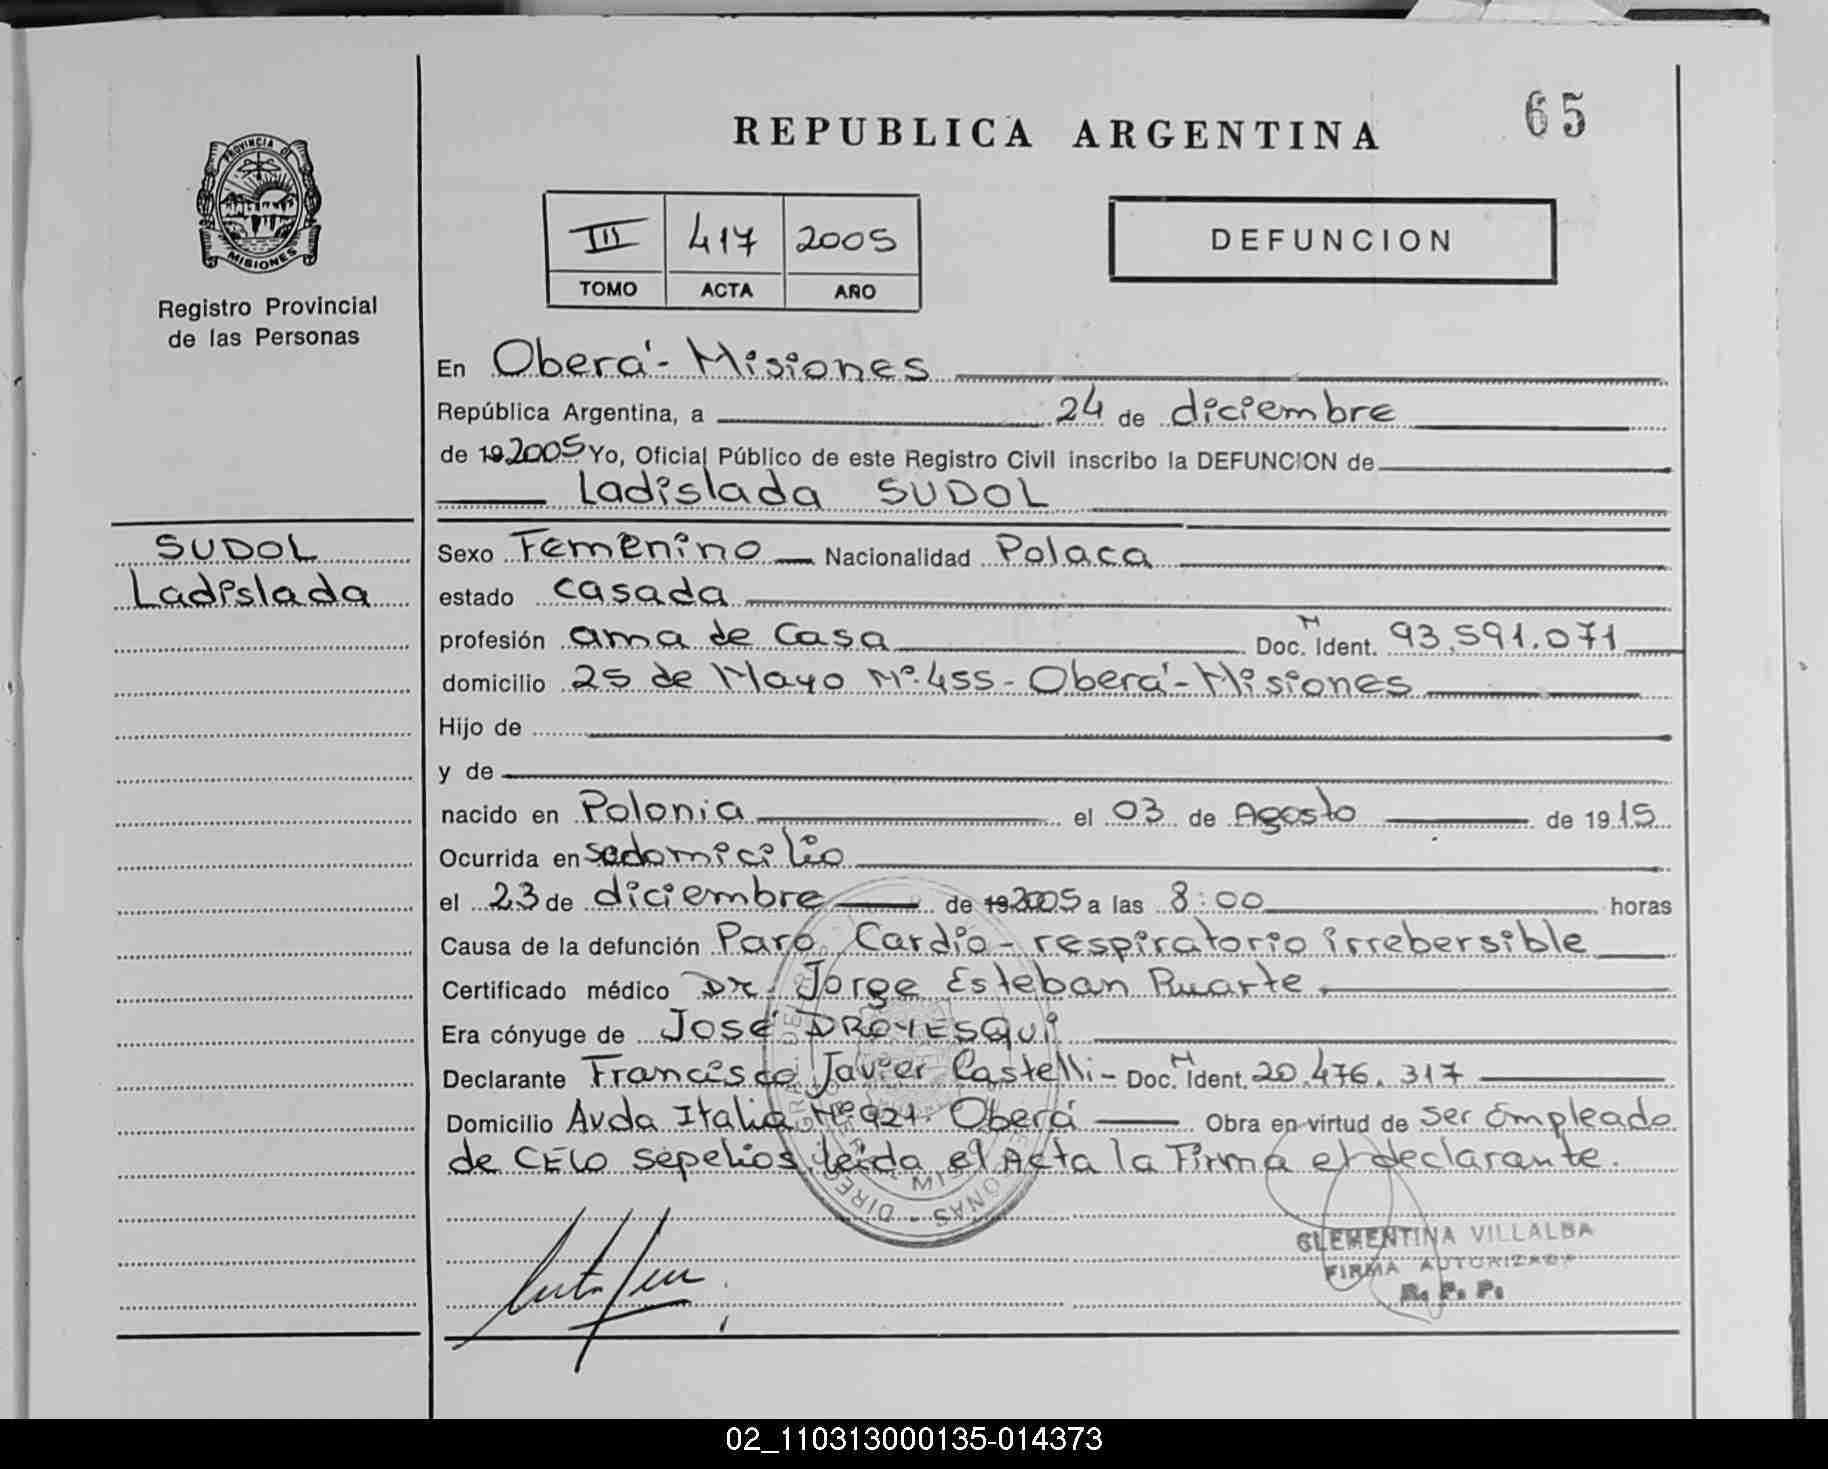 65
REPUBLICA ARGENTINA
PROVINCIA DE
MISIONES
Registro Provincial
de las Personas
III 417 2005
TOMO ACTA AÑO
DEFUNCION
En Oberá - Misiones
República Argentina, a 24 de diciembre
de 19 2005 Yo, Oficial Público de este Registro Civil inscribo la DEFUNCION de
Ladislada SUDOL
SUDOL
Ladislada
Sexo Femenino Nacionalidad Polaca
estado casada
profesión ama de Casa Doc. M Ident. 93.591.071
domicilio 25 de Mayo Nº 455 - Oberá - Misiones
Hijo de
y de
nacido en Polonia el 03 de Agosto de 1915
Ocurrida en sodomicilio
el 23 de diciembre de 19 2005 a las 8:00 horas
Causa de la defunción Paro Cardio - respiratorio irrebersible
Certificado médico Dr. Jorge Esteban Ruarte.
Era cónyuge de José DROYESQUI
Declarante Francisco Javier Castelli - Doc. M Ident. 20.476.317
Domicilio Avda Italia Nº 921. Oberá Obra en virtud de ser Empleado
de CELO sepelios, leida el Acta la Firma el declarante.
CLEMENTINA VILLALBA
FIRMA AUTORIZADA
R. P. P.
02_110313000135-014373